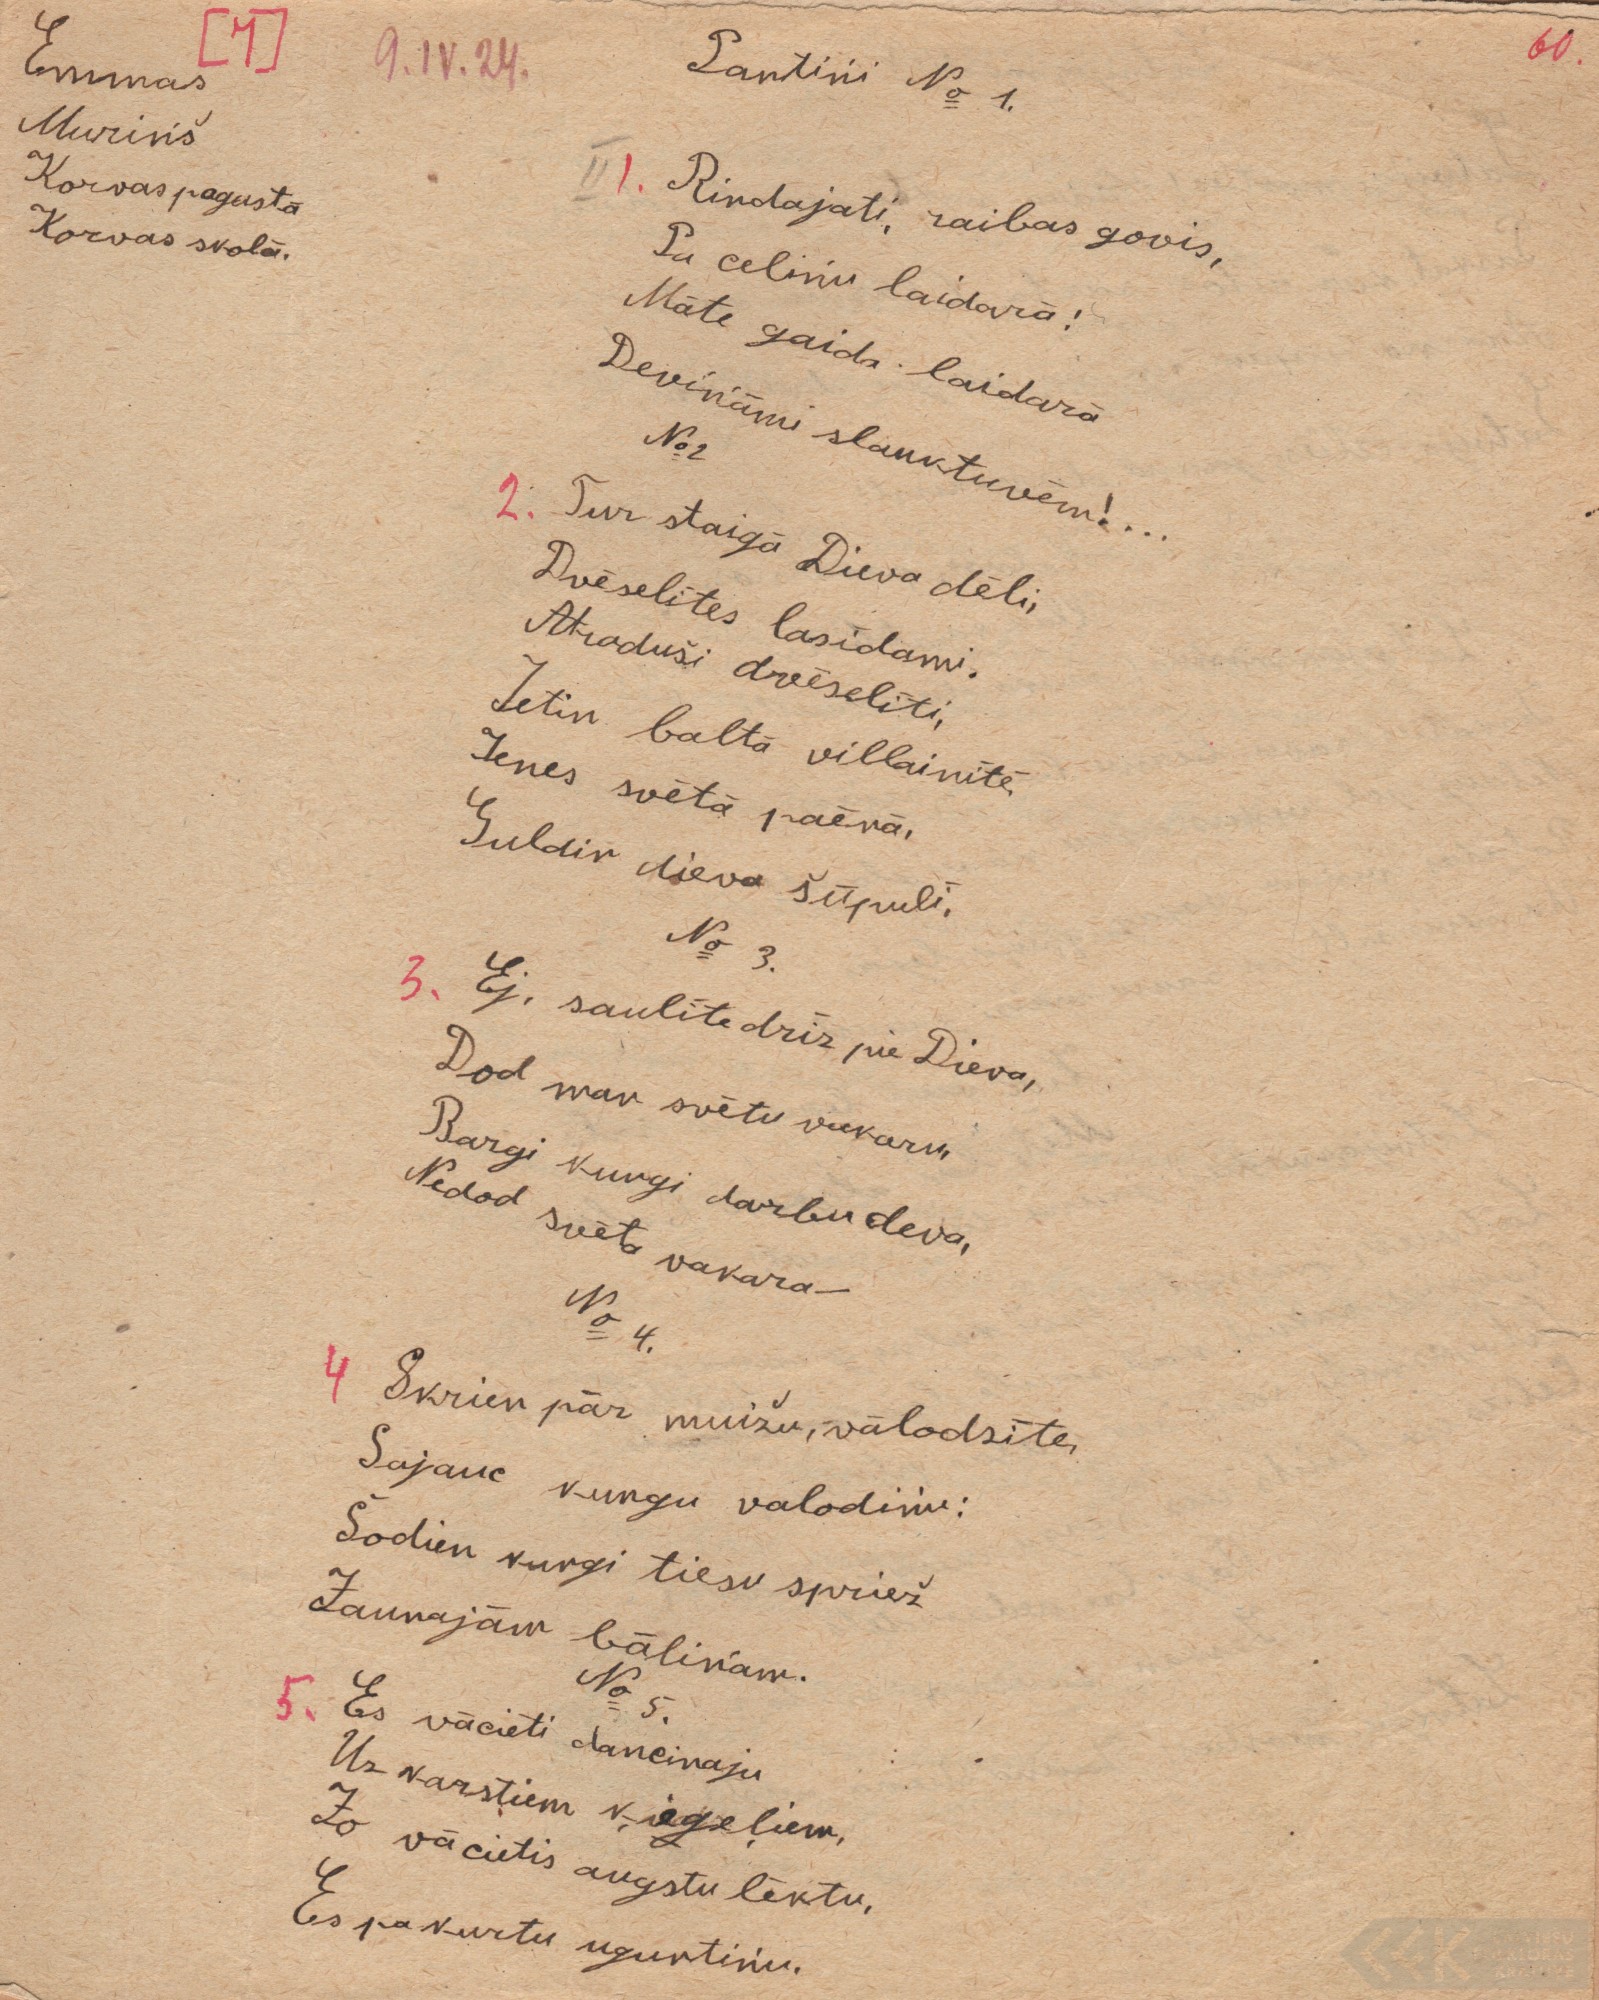 [4]
9.IV.24.
60.
Emmas
Muriņš
Korvas pagustā
Korvas skolā.
Pantiņi No 1.
II 1. Rindajati, raibas govis,
Pa celiņu laidarā!
Māte gaida laidarā
Deviņāmi slauktuvēm!...
No 2
2. Tur staigā Dieva dēli,
Dvēselītes lasīdami.
Atraduši dvēselīti,
Ietin baltā villainītē,
Ienes svētā paēnā,
Guldin dieva šūpulī.
No 3.
3. Ej, saulīte drīz pie Dieva,
Dod man svētu vakaru,
Bargi kungi darbu deva,
Nedod svēta vakara—
No 4.
4 Skrien pār muižu, vālodzīte,
Sajauc kungu valodiņu:
Šodien kungi tiesu spriež
Jaunajām bāliņam.
No 5.
5. Es vācieti dancinaju
Uz karstiem ķieģeļiem,
Jo vācietis augstu lēktu,
Es pakurtu uguntiņu.